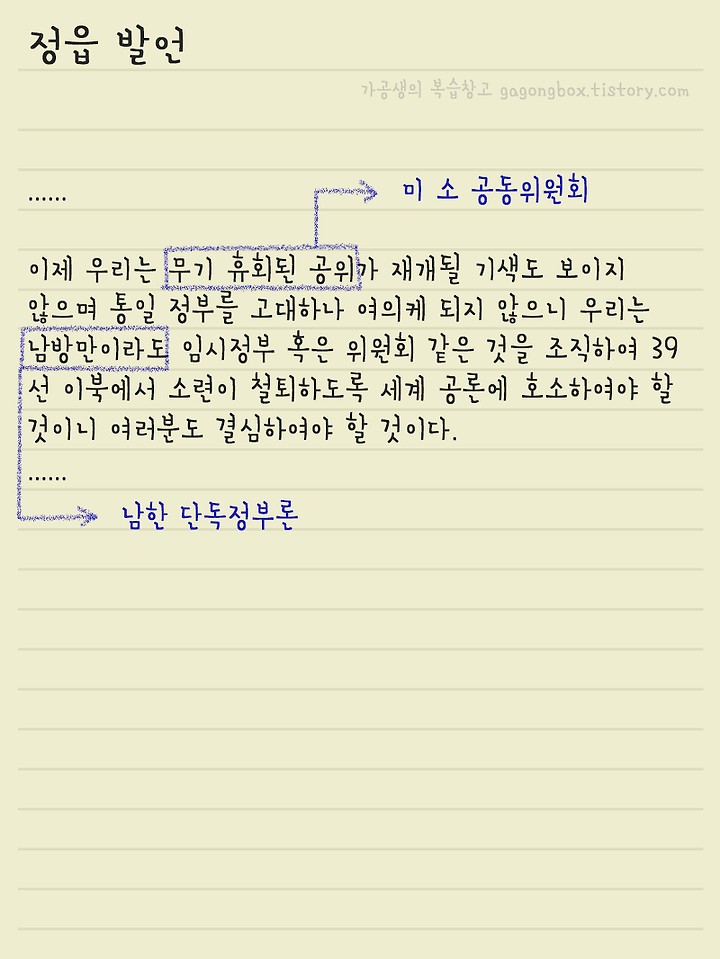 정읍 발언
가공생의 복습창고 gagongbox.tistory.com
...... 미 소 공동위원회
이제 우리는 무기 휴회된 공위가 재개될 기색도 보이지
않으며 통일 정부를 고대하나 여의케 되지 않으니 우리는
남방만이라도 임시정부 혹은 위원회 같은 것을 조직하여 39
선 이북에서 소련이 철퇴하도록 세계 공론에 호소하여야 할
것이니 여러분도 결심하여야 할 것이다.
......
남한 단독정부론